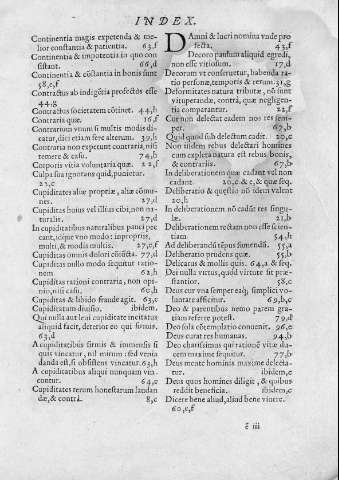 INDEX.
Continentia magis expetenda & me-
lior constantia & patientia. 63,f
Continentia & impotentia in quo con
sistant. 66,d
Continentia & cōstantia in bonis sunt
58,e,f
Contractus ab indigētia profectos esse
44,g
Contractus societatem cōtinet. 44,h
Contraria quæ. 16,f
Contrarium vnum si multis modis di-
catur, dici etiam fere alterum. 39,h
Contraria non expetunt contraria, nisi
temere & casu. 74,h
Corporis vitia voluntaria quæ. 22,f
Culpa sua ignorans quid, punietur.
23,c
Cupiditates aliæ propriæ, aliæ cōmu-
nes. 27,d
Cupiditas huius vel illius cibi, non na-
turalis. 27,d
In cupiditatibus naturalibus pauci pec
cant, idque vno modo: in propriis,
multi, & modis multis. 27,e,f
Cupiditas omnis dolori cōiūcta. 77,d
Cupiditas nullo modo sequitur ratio-
nem 62,h
Cupiditas rationi contraria, non opi-
nio, nisi casu. 60,h
Cupiditas & libido fraude agit. 63,c
Cupiditatum diuisio. ibidem.
Qui nulla aut leui cupiditate incitatus
aliquid facit, deterior eo qui firmis.
63,d
A cupiditatibus firmis & immensis si
quis vincatur, nil mirum: sed venia
danda est, si obsistens vincatur. 63,h
A cupiditatibus aliqui nunquam vin-
cuntur. 64,c
Cupiditates rerum honestarum laudan
dæ, & contrà. 8,c
Damni & lucri nomina vnde pro
fecta. 43,f
Decoro paruum aliquid egredi,
non esse vitiosum. 17,d
Decorum vt conseruetur, habenda ra-
tio personæ, temporis & rerum. 31,g
Deformitates natura tributæ, nō sunt
vituperandæ, contrà, quæ negligen-
tia comparantur. 22,f
Cur non delectat eadem nos res sem-
per. 67,b
Quid quod sub delectum cadit. 20,c
Non iisdem rebus delectari homines
cum expleta natura est rebus bonis,
& contrariis. 67,b
In deliberationem quæ cadant vel non
cadant. 20,c & e, & quæ seq.
Deliberatio & quæstio nō idem valent
20,h
In deliberationem nō cadūt res singu-
læ. 21,b
Deliberationem rectam non esse scien-
tiam 54,h
Ad deliberandū tēpus sumendū. 55,a
Deliberatio prudens quæ. 55,b
Delicatus & mollis quis. 64,a & seq.
Dei nulla virtus, quid virtute sit præ-
stantior. 58,c
Deus cur vna semper eaq́; simplici vo-
luptate afficitur. 69,b,c
Deo & parentibus nemo parem gra-
tiam referre potest. 79,d
Deo sola cōtemplatio conuenit. 96,e
Deus curat res humanas. 94,b
Deo charissimus qui ratione vitæ du-
cem maxime sequitur. 77,b
Deus mente hominis maxime delecta-
tur. ibidem,c
Deus quos homines diligit, & quibus
reddit beneficium. ibidem,c
Dicere bene aliud, aliud bene viuere.
60,e,f
ē iii